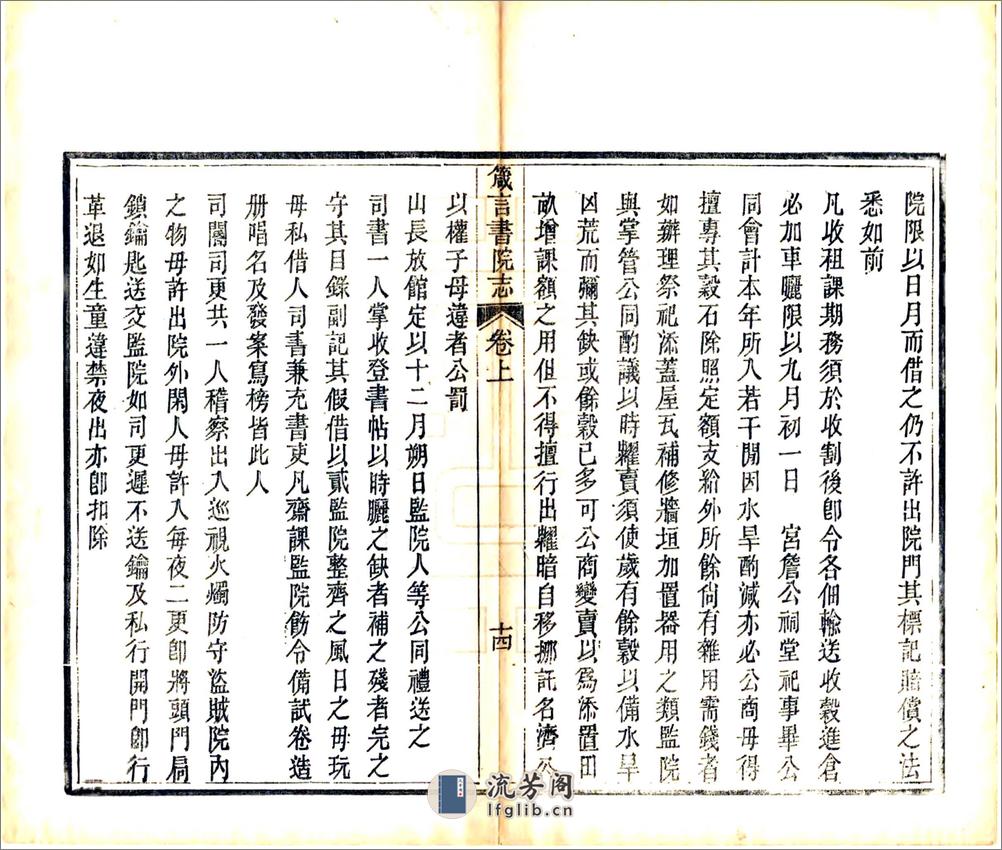 院限以日月而借之仍不許出院門其標記賠償之法
悉如前
凡收租課期務須於收割後卽令各佃輸送收穀進倉
必加車曬限以九月初一日　宮詹公祠堂祀事畢公
同會計本年所入若干閒因水旱酌減亦必公商毋得
擅專其穀石除照定額支給外所餘尙有雜用需錢者
如辦理祭祀添蓋屋瓦補修牆垣加置器用之類監院
與掌管公同酌議以時糶賣須使歲有餘穀以備水旱
凶荒而彌其缺或餘穀已多可公商變賣以爲添置田
畝增課額之用但不得擅行出糶暗自移挪託名濟公
箴言書院志
卷上
十四
以權子母違者公罰
山長放館定以十二月朔日監院人等公同禮送之
司書一人掌收登書帖以時曬之缺者補之殘者完之
守其目錄副記其假借以貳監院整齊之風日之毋玩
毋私借人司書兼充書吏凡齋課監院飭令備試卷造
册唱名及發案寫榜皆此人
司閽司更共一人稽察出入巡視火燭防守盜賊院內
之物毋許出院外閑人毋許入每夜二更卽將頭門扃
鎖鑰匙送交監院如司更遲不送鑰及私行開門卽行
革退如生童違禁夜出亦卽扣除
流芳阁
lfglib.cn